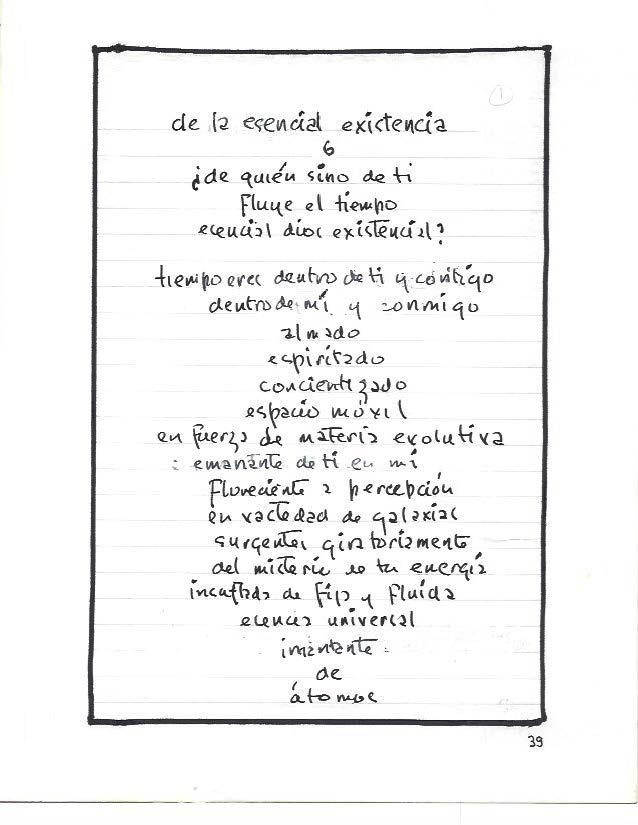 1
de la esencial existencia
6
¿de quién sino de ti
fluye el tiempo
esencial dios existencial?
tiempo eres dentro de ti y contigo
dentro de mí y conmigo
almado
espiritado
concientizado
espacio móvil
en fuerza de materia evolutiva
: emanante de ti en mí
floreciente a percepción
en vastedad de galaxias
surgentes giratoriamente
del misterio de tu energía
insuflada de fija y fluida
esencia universal
imantante
de
átomos
39